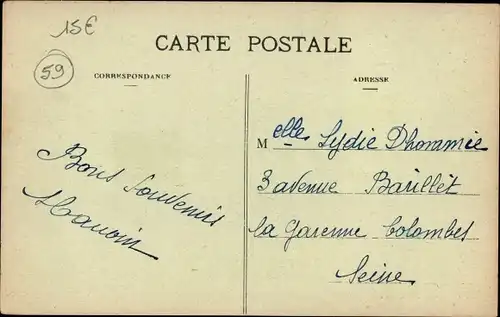 15€
59
CARTE POSTALE
CORRESPONDANCE
ADRESSE
Bons Souvenirs
Melle Lydie Dhommée
3 avenue Barillet
la garenne Colombes
Seine